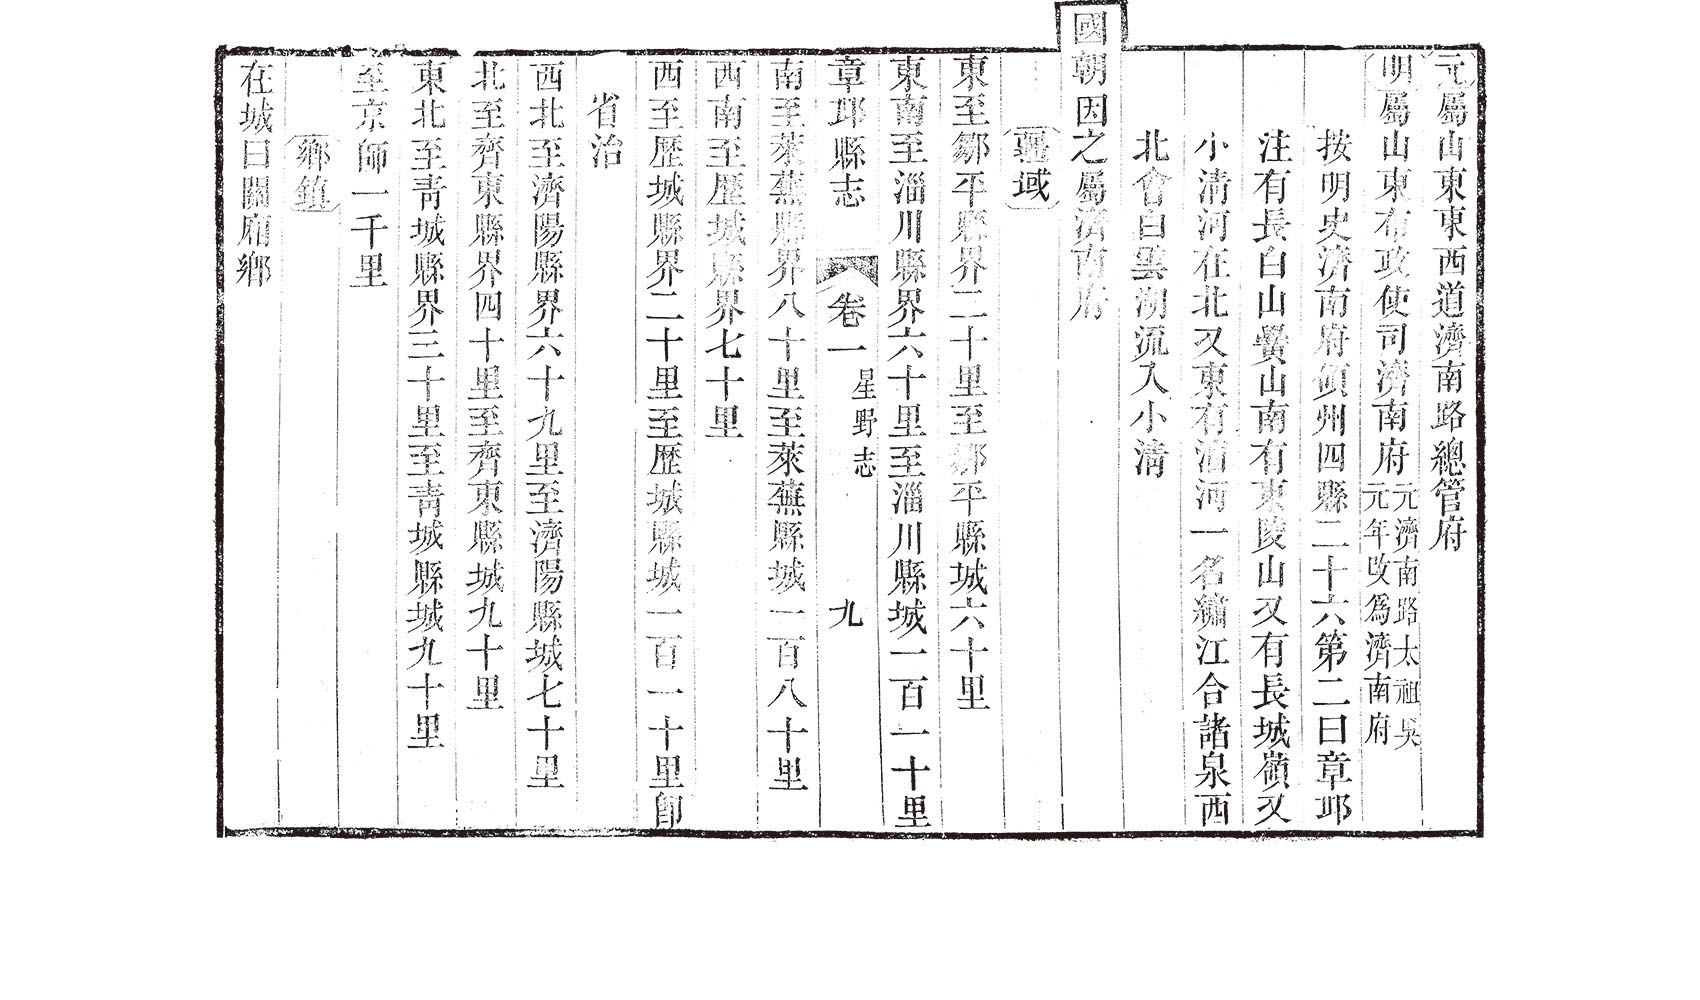 元屬山東東西道濟南路總管府
明屬山東布政使司濟南府元濟南路太祖吳元年改爲濟南府
按明史濟南府領州四縣二十六第二曰章邱
注有長白山黌山南有東陵山又有長城嶺又
小清河在北又東有淯河一名繡江合諸泉西
北會白雲湖流入小清
國朝因之屬濟南府
疆域
東至鄒平縣界二十里至鄒平縣城六十里
東南至淄川縣界六十里至淄川縣城一百一十里
章邱縣志 卷一 星野志 九
南至萊蕪縣界八十里至萊蕪縣城一百八十里
西南至歷城縣界七十里
西至歷城縣界二十里至歷城縣城一百一十里卽
省治
西北至濟陽縣界六十九里至濟陽縣城七十里
北至齊東縣界四十里至齊東縣城九十里
東北至靑城縣界三十里至靑城縣城九十里
至京師一千里
鄉鎮
在城曰關廂鄉